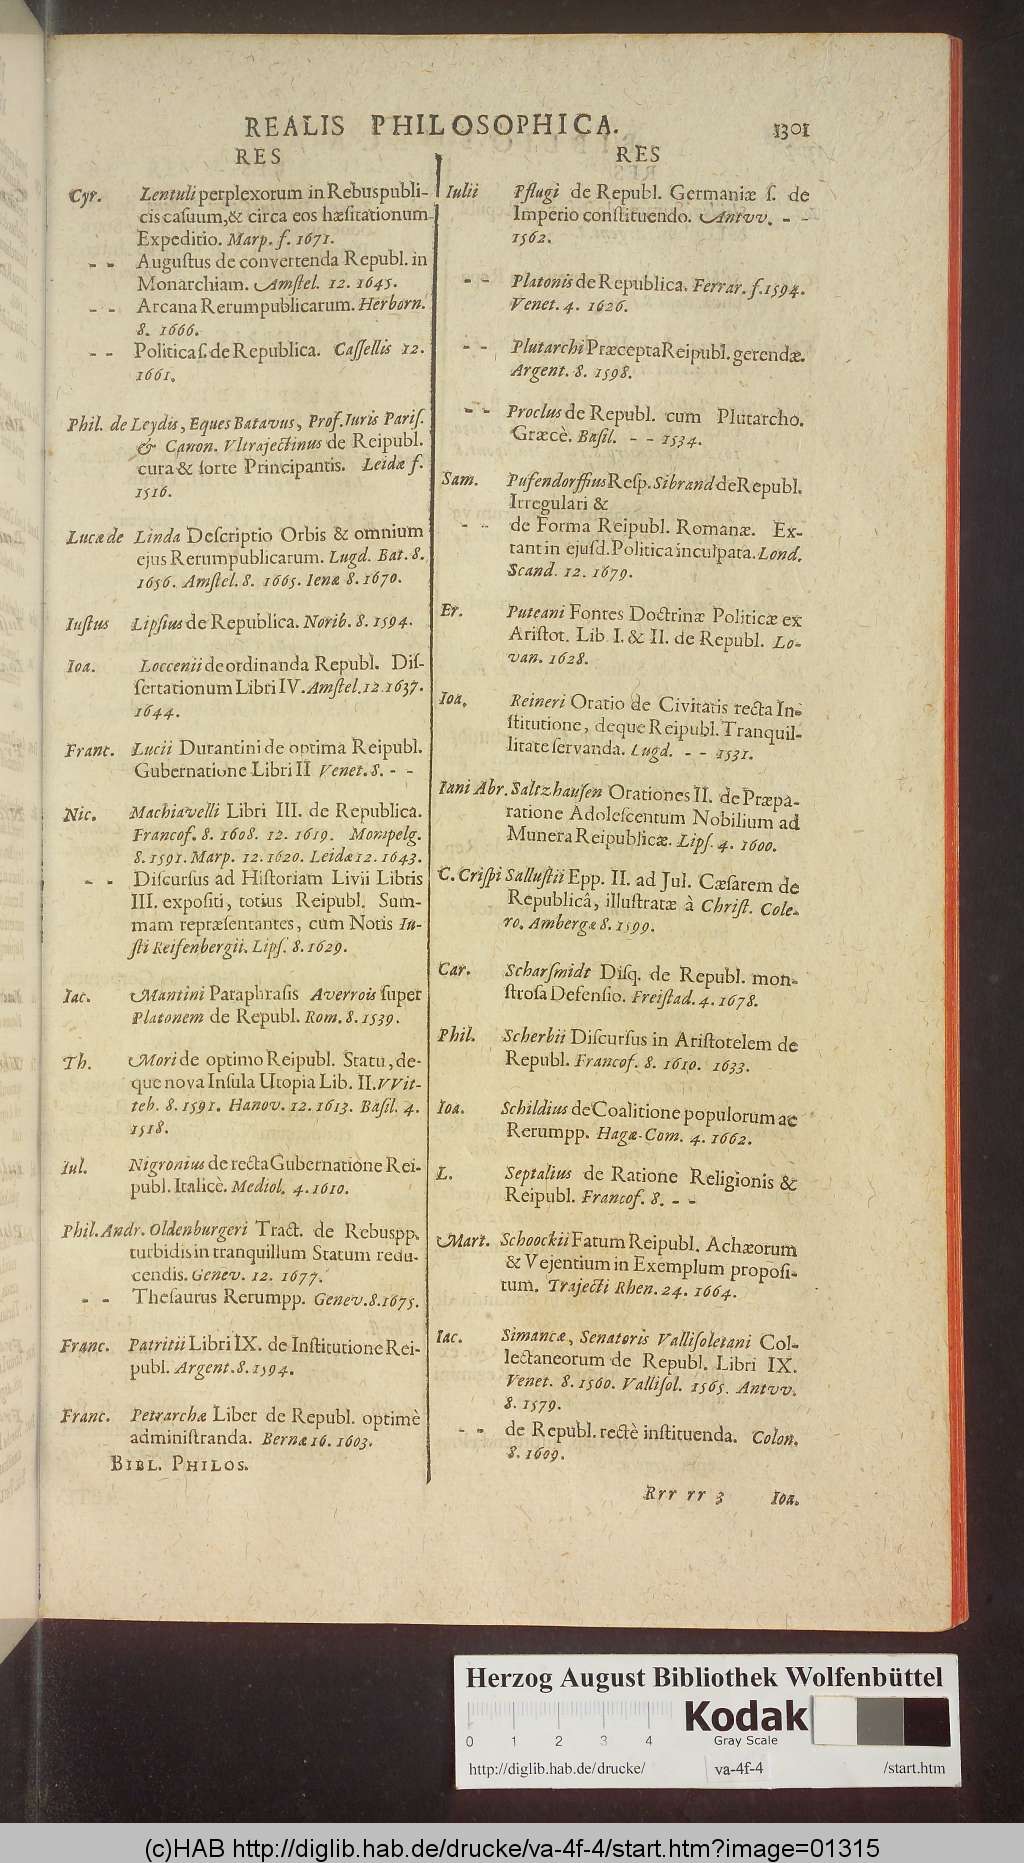 REALIS PHILOSOPHICA. 1301
RES
Cyr. Lentuli perplexorum in Rebuspubli-
cis casuum, & circa eos hæsitationum
Expeditio. Marp. f. 1671.
- - Augustus de convertenda Republ. in
Monarchiam. Amstel. 12. 1645.
- - Arcana Rerumpublicarum. Herborn.
8. 1666.
- - Politica s. de Republica. Cassellis 12.
1661.
Phil. de Leydis, Eques Batavus, Prof. Juris Paris.
& Canon. Vltrajectinus de Reipubl.
cura & sorte Principantis. Leidæ f.
1516.
Lucæ de Linda Descriptio Orbis & omnium
ejus Rerumpublicarum. Lugd. Bat. 8.
1656. Amstel. 8. 1665. Ienæ 8. 1670.
Iustus Lipsius de Republica. Norib. 8. 1594.
Ioa. Loccenii de ordinanda Republ. Dis-
sertationum Libri IV. Amstel. 12 1637.
1644.
Franc. Lucii Durantini de optima Reipubl.
Gubernatione Libri II Venet. 8. - -
Nic. Machiavelli Libri III. de Republica.
Francof. 8. 1608. 12. 1619. Mompelg.
8. 1591. Marp. 12. 1620. Leidæ 12. 1643.
- - Discursus ad Historiam Livii Libris
III. expositi, totius Reipubl. Sum-
mam repræsentantes, cum Notis Iu-
sti Reifenbergii. Lips. 8. 1629.
Iac. Mantini Paraphrasis Averrois super
Platonem de Republ. Rom. 8. 1539.
Th. Mori de optimo Reipubl. Statu, de-
que nova Insula Utopia Lib. II. VVit-
teb. 8. 1591. Hanov. 12. 1613. Basil. 4.
1518.
Iul. Nigronius de recta Gubernatione Rei-
publ. Italicè. Mediol. 4. 1610.
Phil. Andr. Oldenburgeri Tract. de Rebuspp.
turbidis in tranquillum Statum redu-
cendis. Genev. 12. 1677.
- - Thesaurus Rerumpp. Genev. 8. 1675.
Franc. Patritii Libri IX. de Institutione Rei-
publ. Argent. 8. 1594.
Franc. Petrarchæ Liber de Republ. optimè
administranda. Bernæ 16. 1603.
BIBL. PHILOS.
RES
Iulii Pflugi de Republ. Germaniæ s. de
Imperio constituendo. Antvv. - -
1562.
- - Platonis de Republica. Ferrar. f. 1594.
Venet. 4. 1626.
- - Plutarchi Præcepta Reipubl. gerendæ.
Argent. 8. 1598.
- - Proclus de Republ. cum Plutarcho.
Græcè. Basil. - - 1534.
Sam. Pufendorffius Resp. Sibrand de Republ.
Irregulari &
- - de Forma Reipubl. Romanæ. Ex-
tant in ejusd. Politica inculpata. Lond.
Scand. 12. 1679.
Er. Puteani Fontes Doctrinæ Politicæ ex
Aristot. Lib I. & II. de Republ. Lo-
van. 1628.
Ioa. Reineri Oratio de Civitatis recta In-
stitutione, deque Reipubl. Tranquil-
litate servanda. Lugd. - - 1531.
Iani Abr. Saltzhausen Orationes II. de Præpa-
ratione Adolescentum Nobilium ad
Munera Reipublicæ. Lips. 4. 1600.
C. Crispi Sallustii Epp. II. ad Jul. Cæsarem de
Republicâ, illustratæ à Christ. Cole-
ro. Ambergæ 8. 1599.
Car. Scharsmidt Disq. de Republ. mon-
strosa Defensio. Freistad. 4. 1678.
Phil. Scherbii Discursus in Aristotelem de
Republ. Francof. 8. 1610. 1633.
Ioa. Schildius de Coalitione populorum ac
Rerumpp. Hagæ-Com. 4. 1662.
L. Septalius de Ratione Religionis &
Reipubl. Francof. 8. - -
Mart. Schoockii Fatum Reipubl. Achæorum
& Vejentium in Exemplum proposi-
tum. Trajecti Rhen. 24. 1664.
Iac. Simancæ, Senatoris Vallisoletani Col-
lectaneorum de Republ. Libri IX.
Venet. 8. 1560. Vallisol. 1565. Antvv.
8. 1579.
- - de Republ. rectè instituenda. Colon.
8. 1609.
Rrr rr 3 Ioa.
Herzog August Bibliothek Wolfenbüttel
0 1 2 3 4
Kodak
Gray Scale
http://diglib.hab.de/drucke/ va-4f-4 /start.htm
(c)HAB http://diglib.hab.de/drucke/va-4f-4/start.htm?image=01315